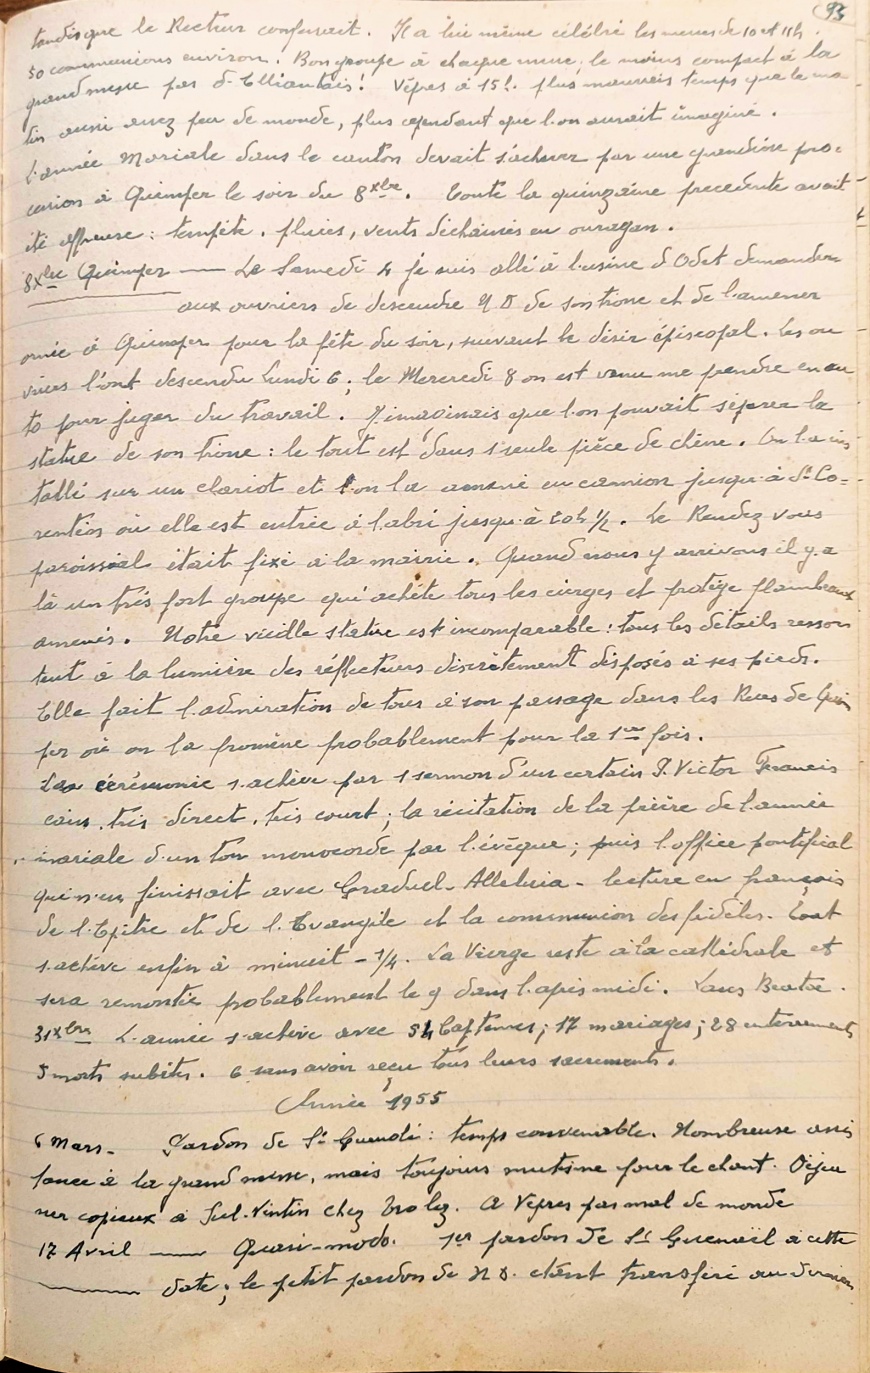 93
tandis que le Recteur confessait. Il a lui même célébré les messes de 10 et 11h.
50 communions environ. Bon groupe à chaque messe; le moins compact à la
grand messe pas d'Elliantais! Vêpres à 15h. plus mauvais temps que le ma
tin aussi assez peu de monde, plus cependant que l'on aurait imaginé.
L'année Mariale dans le canton devait s'achever par une grandiose pro-
cession à Quimper le soir du 8xbre. Toute la quinzaine precedente avait
été affreuse: tempête, pluies, vents déchainés en ouragan.
8xbre Quimper — Le Samedi 4 je suis allé à l'usine d'Odet demander
aux ouvriers de descendre N D de son trone et de l'amener
ornée à Quimper pour la fête du soir, suivant le désir épiscopal. Les ou
vriers l'ont descendu Lundi 6; le Mercredi 8 on est venu me prendre en au
to pour juger du travail. J'imaginais que l'on pouvait séparer la
statue de son trone: le tout est dans 1 seule pièce de chêne. On l'a ins
tallé sur un chariot et l'on la amené en camion jusqu'à St Co-
rentin où elle est entrée à l'abri jusqu'à 20h 1/2. Le Rendez vous
paroissial était fixé à la mairie. Quand nous y arrivons il y a
là un très fort groupe qui achète tous les cierges et protège flambeaux
amenés. Notre vieille statue est incomparable: tous les détails ressor
tent à la lumière des réflecteurs discrètement disposés à ses pieds.
Elle fait l'admiration de tous à son passage dans les Rues de Quim
per où on la promène probablement pour la 1ère fois.
La cérémonie s'achève par 1 sermon d'un certain P. Victor Francis
cain, très direct, très court; la récitation de la prière de l'année
mariale d'un ton monocorde par l'évêque; puis l'office pontifical
qui n'en finissait avec Graduel - Alleluia - lecture en français
de l'Epitre et de l'Evangile et la communion des fidèles. Tout
s'achève enfin à minuit - 1/4. La Vierge reste à la cathédrale et
sera remontée probablement le 9 dans l'après midi. Laus Beatae.
31xbre L'année s'achève avec 54 Baptemes; 17 mariages; 28 enterrements
5 morts subites. 6 sans avoir reçu tous leurs sacrements.
Année 1955
6 Mars - Pardon de St Guenolé: temps convenable. Nombreuse assis
tance à la grand messe, mais toujours mutine pour le chant. Déjeu
ner copieux à chez. A Vêpres pas mal de monde
17 Avril — Quasi-modo. 1er pardon de St Guenaël à cette
date; le petit pardon de N D. étant transféré au dernier